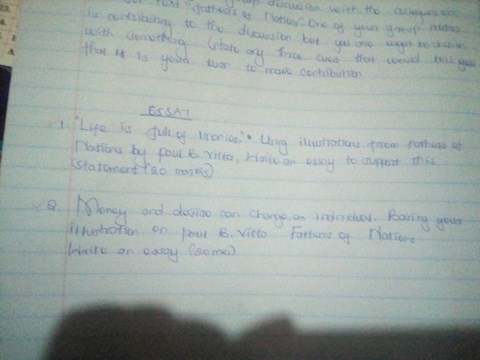 discussion with the colleagues on
"Fathers of Nation" One of your group mates
is contributing to the discussion but you are eager to chip in
with something. State any three cues that would
that it is your turn to make contribution
ESSAY
1. "Life is full of ironies". Using illustrations from Fathers of
Nations by Paul B. Vitta, Write an essay to support this
statement (20 marks)
2. Money and desire can change an individual. Basing your
illustration on Paul B. Vitta Fathers of Nations
Write an essay (20mks)